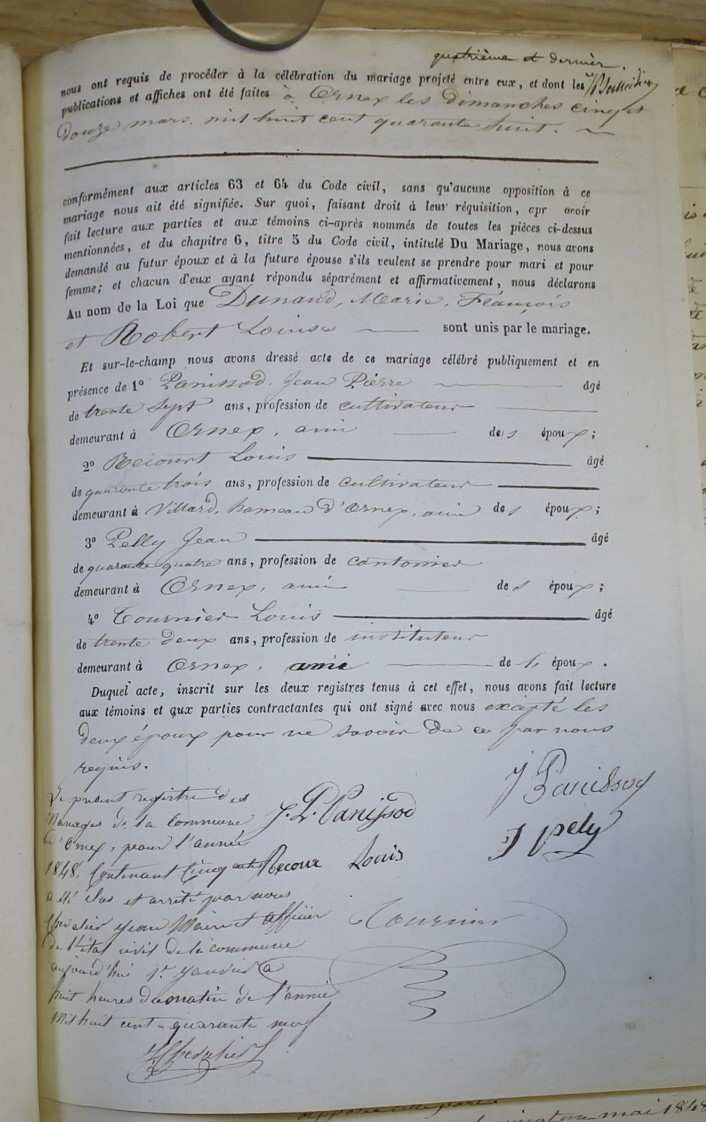 quatrième et dernier.
nous ont requis de procéder à la célébration du mariage projeté entre eux, et dont les
publications et affiches ont été faites à Ornex les Dimanches cinq et
Douze mars, mil huit cent quarante huit.
conformément aux articles 63 et 64 du Code civil, sans qu'aucune opposition à ce
mariage nous ait été signifiée. Sur quoi, faisant droit à leur réquisition, apr avoir
fait lecture aux parties et aux témoins ci-après nommés de toutes les pièces ci-dessus
mentionnées, et du chapitre 6, titre 5 du Code civil, intitulé Du Mariage, nous avons
demandé au futur époux et à la future épouse s'ils veulent se prendre pour mari et pour
femme; et chacun d'eux ayant répondu séparément et affirmativement, nous déclarons
Au nom de la Loi que Dunand, Marie, François
et Robert Louise sont unis par le mariage.
Et sur-le-champ nous avons dressé acte de ce mariage célébré publiquement et en
présence de 1º Panissod, Jean Pierre âgé
de trente sept ans, profession de cultivateur
demeurant à Ornex, ami des époux;
2º Recourt Louis âgé
de quarante trois ans, profession de cultivateur
demeurant à Villard, hameau d'Ornex, ami des époux;
3º Pelly Jean âgé
de quarante quatre ans, profession de cantonier
demeurant à Ornex, ami des époux;
4º Tournier Louis âgé
de trente deux ans, profession de instituteur
demeurant à Ornex, ami de époux.
Duquel acte, inscrit sur les deux registres tenus à cet effet, nous avons fait lecture
aux témoins et aux parties contractantes qui ont signé avec nous excepté les
deux époux pour ne savoir de ce par nous
requis.
J. P. Panissod
J Panissod
Recour Louis
J pely
Tournier
Le présent registre des
Mariages de la Commune
d'Ornex, pour l'année
1848, Contenant Cinq actes
a été clos et arrêté par nous
Chevalier Jean Maire et officier
de l'état civil de la commune
aujourd'hui 1er Janvier a
huit heures du matin de l'année
Mil huit cent quarante neuf
Chevalier
mai 1848